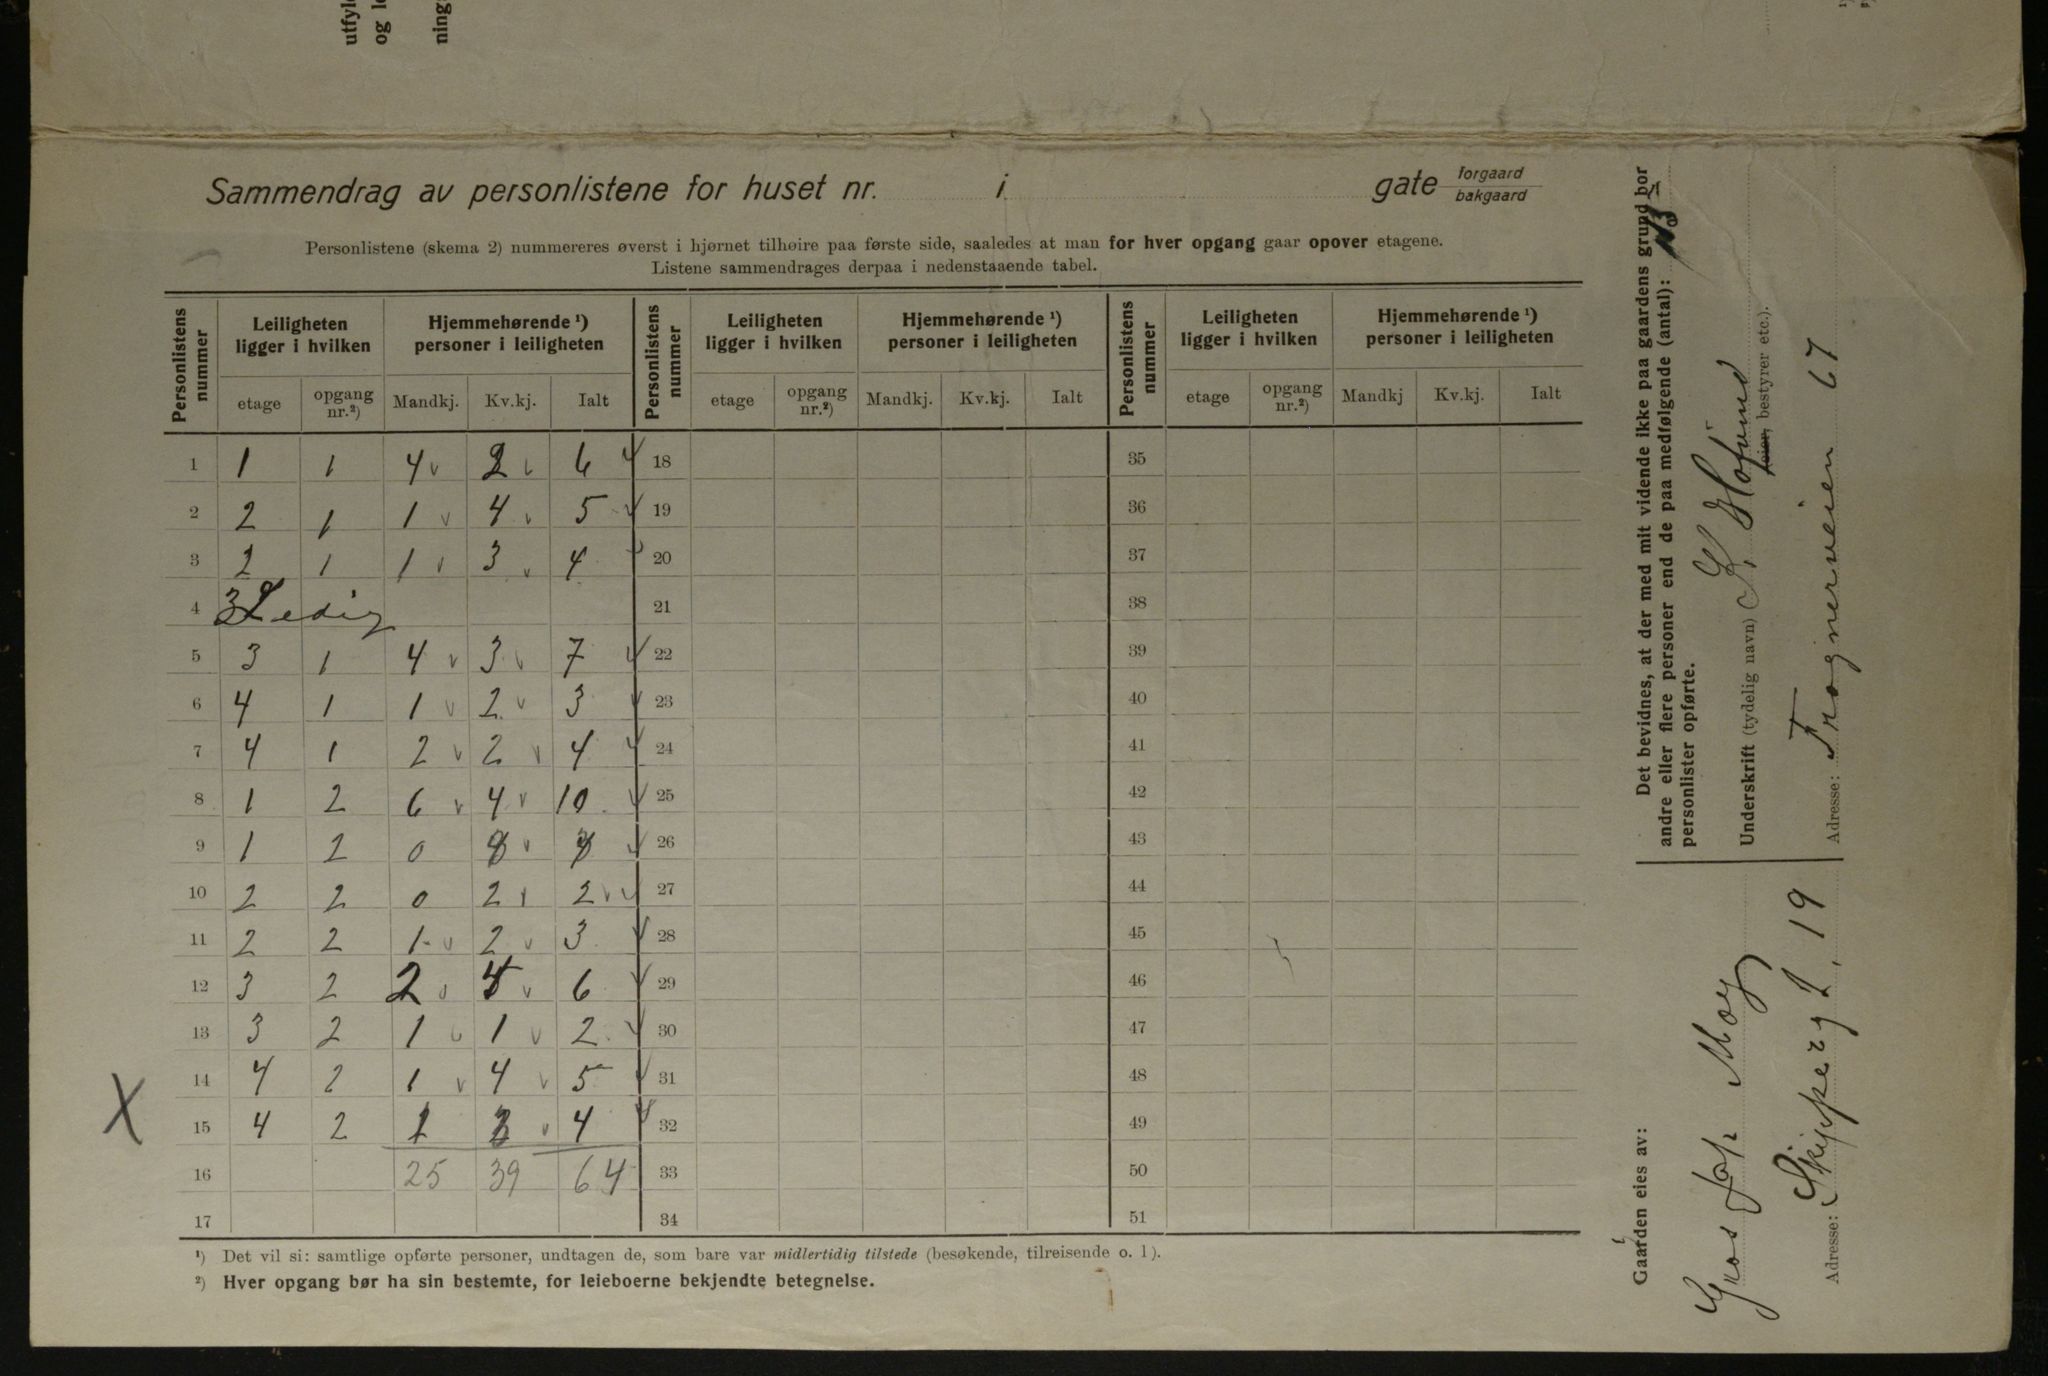 utfyl
og l
ning
Sammendrag av personlistene for huset nr. i gate forgaard bakgaard
Personlistene (skema 2) nummereres øverst i hjørnet tilhøire paa første side, saaledes at man for hver opgang gaar opover etagene.
Listene sammendrages derpaa i nedenstaaende tabel.
Personlistens nummer | Leiligheten ligger i hvilken | Hjemmehørende ¹) personer i leiligheten | Personlistens nummer | Leiligheten ligger i hvilken | Hjemmehørende ¹) personer i leiligheten | Personlistens nummer | Leiligheten ligger i hvilken | Hjemmehørende ¹) personer i leiligheten
etage | opgang nr.²) | Mandkj. | Kv.kj. | Ialt | etage | opgang nr.²) | Mandkj. | Kv.kj. | Ialt | etage | opgang nr.²) | Mandkj | Kv.kj. | Ialt
1 1 1 4 2 6 18 35
2 2 1 1 4 5 19 36
3 2 1 1 3 4 20 37
4 3 Ledig 21 38
5 3 1 4 3 7 22 39
6 4 1 1 2 3 23 40
7 4 1 2 2 4 24 41
8 1 2 6 4 10 25 42
9 1 2 0 26 43
10 2 2 0 2 2 27 44
11 2 2 1 2 3 28 45
12 3 2 2 4 6 29 46
13 3 2 1 1 2 30 47
14 4 2 1 4 5 31 48
X 15 4 2 1 3 4 32 49
16 25 39 64 33 50
17 34 51
¹) Det vil si: samtlige opførte personer, undtagen de, som bare var midlertidig tilstede (besøkende, tilreisende o. l).
²) Hver opgang bør ha sin bestemte, for leieboerne bekjendte betegnelse.
Det bevidnes, at der med mit vidende ikke paa gaardens grund bor
andre eller flere personer end de paa medfølgende (antal):
personlister opførte.
Underskrift (tydelig navn) K. Hofvind
(eier, bestyrer etc.).
Adresse: Frognerveien 67
Gaarden eies av:
Moy
Adresse: Skipperg. 19